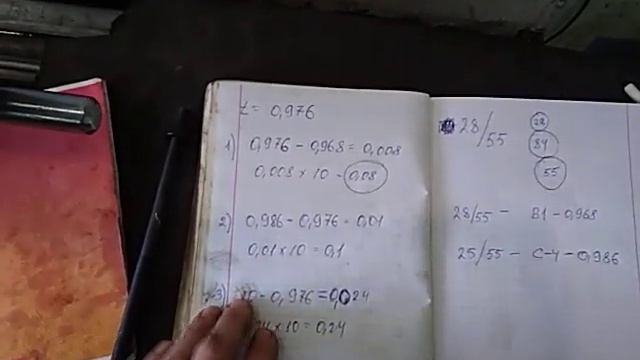 t = 0,976
1) 0,976 - 0,968 = 0,008
0,008 x 10 - 0,08
2) 0,986 - 0,976 = 0,01
0,01 x 10 = 0,1
3) - 0,976 = 0,024
x 10 = 0,24
28/55
28
84
55
28/55 - B1 - 0,968
25/55 - C-4 - 0,986